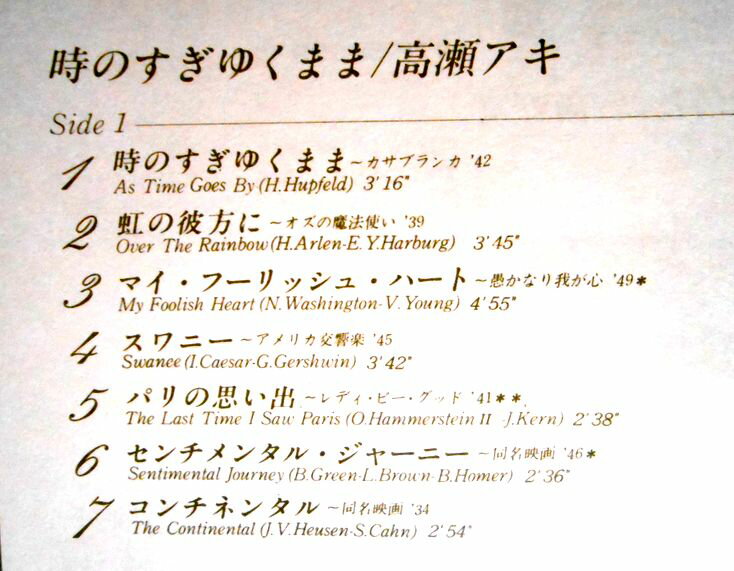 時のすぎゆくまま/高瀬アキ
Side 1
1 時のすぎゆくまま~カサブランカ '42
As Time Goes By (H.Hupfeld) 3'16"
2 虹の彼方に ~オズの魔法使い '39
Over The Rainbow (H.Arlen-E.Y.Harburg) 3'45"
3 マイ・フーリッシュ・ハート~愚かなり我が心 '49*
My Foolish Heart (N.Washington-V.Young) 4'55"
4 スワニー~アメリカ交響楽 '45
Swanee (I.Caesar-G.Gershwin) 3'42"
5 パリの思い出~レディ・ビー・グッド '41**
The Last Time I Saw Paris (O.Hammerstein II -J.Kern) 2'38"
6 センチメンタル・ジャーニー~同名映画 '46*
Sentimental Journey (B.Green-L.Brown-B.Homer) 2'36"
7 コンチネンタル ~同名映画 '34
The Continental (J.V.Heusen-S.Cahn) 2'54"